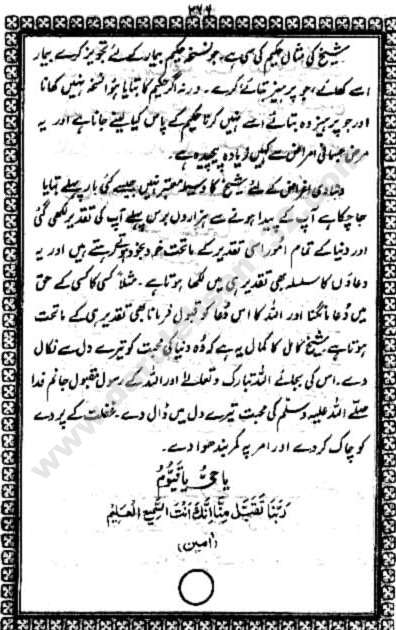 ۳۶۶
شیخ کی مثال حکیم کی سی ہے، جو نسخہ حکیم بیمار کے لئے تجویز کرے بیمار
اسے کھائے، جو پرہیز بتائے کرے۔ ورنہ اگر حکیم کا بتایا ہوا نسخہ نہیں کھاتا
اور جو پرہیز وہ بتائے اسے نہیں کرتا حکیم کے پاس کیا لینے جاتا ہے اور یہ
مرض جسمانی امراض سے کہیں زیادہ پیچیدہ ہے۔
دنیادی اغراض کے لئے شیخ کا وسیلہ معتبر نہیں جیسے کئی بار پہلے بتایا
جا چکا ہے آپ کے پیدا ہونے سے ہزاروں برس پہلے آپ کی تقدیر لکھی گئی
اور دنیا کے تمام امور اسی تقدیر کے ماتحت خود بخود ہوتے رہتے ہیں اور یہ
دعاؤں کا سلسلہ بھی تقدیر ہی میں لکھا ہوتا ہے۔ مثلاً کسی کا کسی کے حق
میں دُعا مانگنا اور اللہ کا اس دُعا کو قبول فرمانا بھی تقدیر ہی کے ماتحت
ہوتا ہے شیخ کامل کا کمال یہ ہے کہ وُہ دنیا کی محبت کو تیرے دل سے نکال
دے۔ اس کی بجائے اللہ تبارک و تعالےٰ اور اللہ کے رسول مقبول جانم فدا
صلے اللہ علیہ وسلم کی محبت تیرے دل میں ڈال دے۔ غفلت کے پردے
کو چاک کر دے اور امر پہ کمر بندھوا دے۔
یَا حَیُّ یَا قَیُّوْمُ
رَبَّنَا تَقَبَّلْ مِنَّا اِنَّكَ اَنْتَ السَّمِیْعُ الْعَلِیْمُ
(امین)